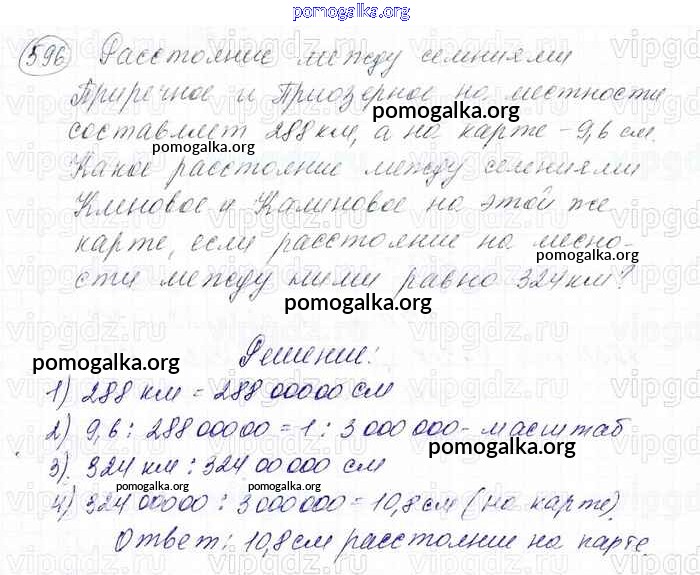 pomogalka.org
596 Расстояние между селениями
Приречное и Приозерное на местности
pomogalka.org
составляет 288 км, а на карте - 9,6 см.
pomogalka.org
pomogalka.org
Какое расстояние между селениями
Кленовое и Калиновое на этой же
карте, если расстояние на месно-
сти между ними равно 324 км?
pomogalka.org
Решение:
pomogalka.org
1) 288 км = 288 00000 см
2) 9,6 : 288 00000 = 1 : 3 000 000 - масштаб
pomogalka.org
3) 324 км : 324 00 000 см
pomogalka.org
pomogalka.org
4) 324 00000 : 3 000 000 = 10,8 см (на карте).
Ответ: 10,8 см расстояние на карте.
pomogalka.org